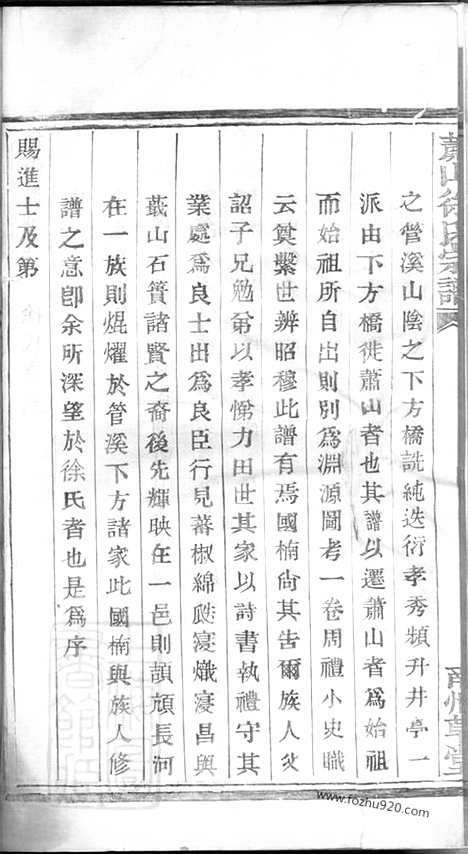 蕭山徐氏宗譜
之管溪山陰之下方橋詵純迭衍孝秀頻升井亭一
派由下方橋徙蕭山者也其譜以遷蕭山者為始祖
而始祖所自出則別為淵源圖考一卷周禮小史職
云奠繫世辨昭穆此譜有焉國楠尙其告爾族人父
詔子兄勉弟以孝悌力田世其家以詩書執禮守其
業處為良士出為良臣行見蕃椒綿瓞寖熾寖昌與
蕺山石簣諸賢之裔後先輝映在一邑則頡頏長河
在一族則焜燿於管溪下方諸家此國楠與族人修
譜之意卽余所深望於徐氏者也是為序
賜進士及第
南州草堂
www.fozhu920.com